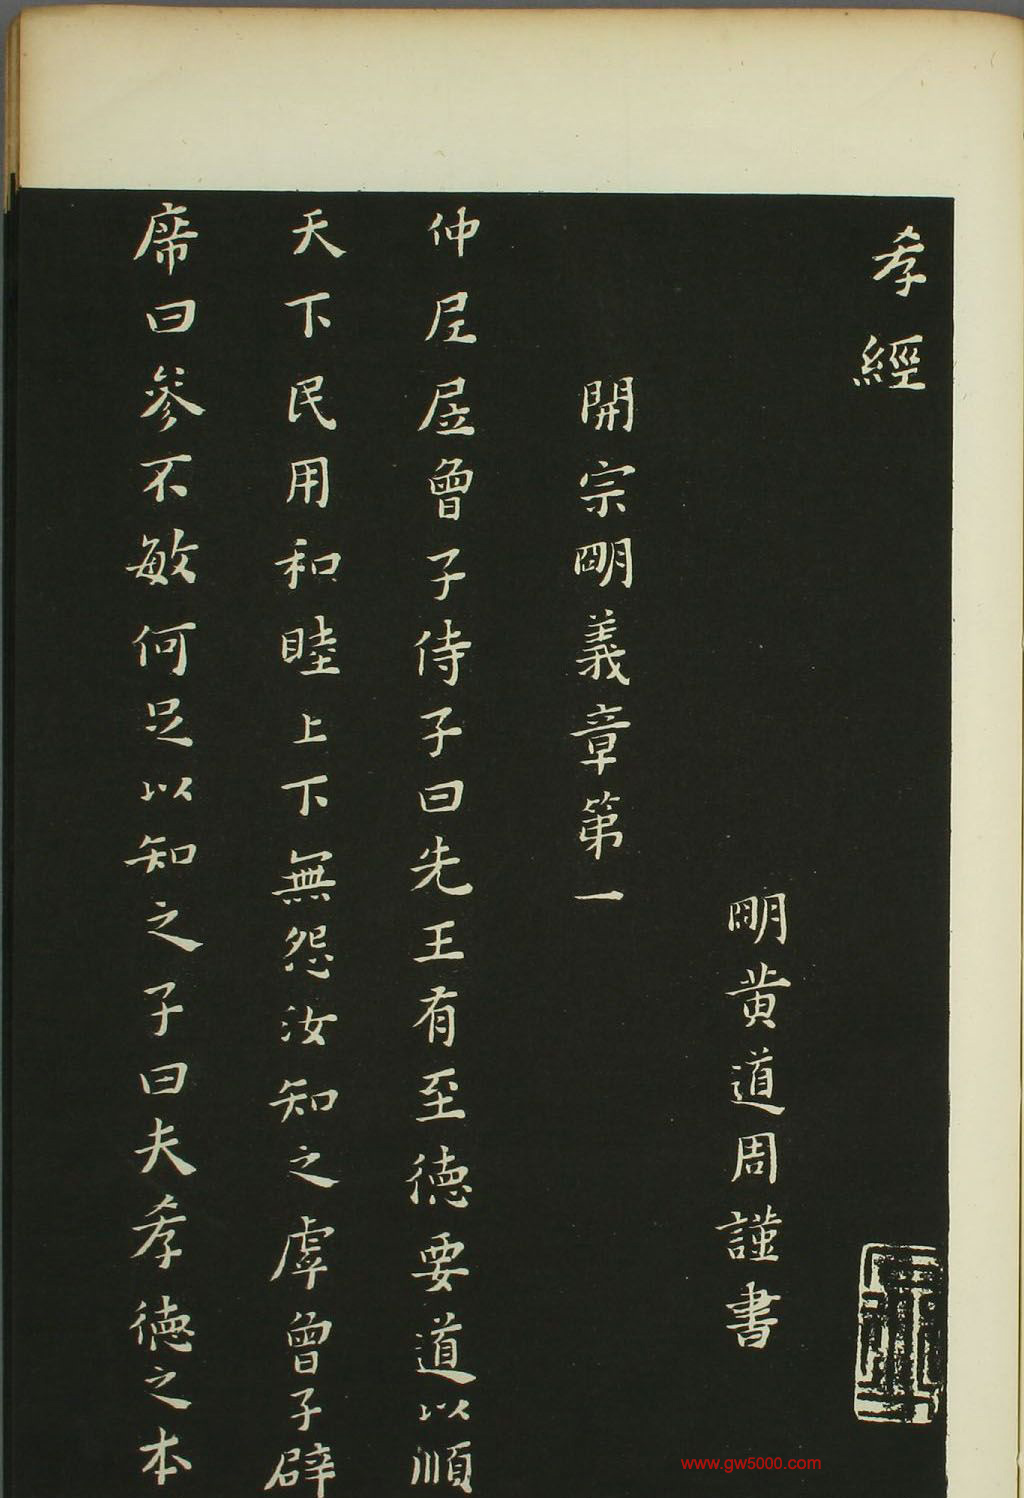 孝經
朙黄道周謹書
開宗朙義章第一
仲尼居曾子侍子曰先王有至徳要道以順
天下民用和睦上下無怨汝知之虖曾子辟
席曰參不敏何足以知之子曰夫孝徳之本
www.gw5000.com